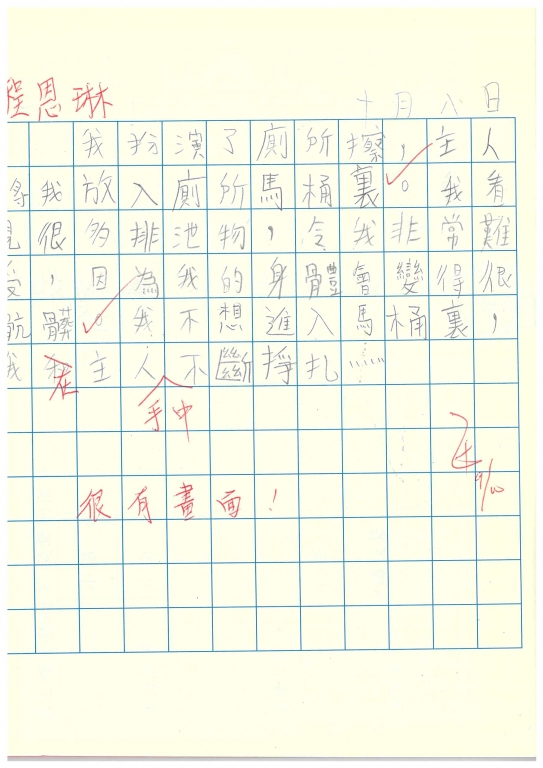 程恩琳
十月八日
我扮演了廁所擦，主人
將我放入廁所馬桶裏。我看
見很多排池物，令我非常難
受，因為我的身體會變得很
骯髒。我不想進入馬桶裏，
我在主人不斷掙扎……
手中
9/10
很有畫面！